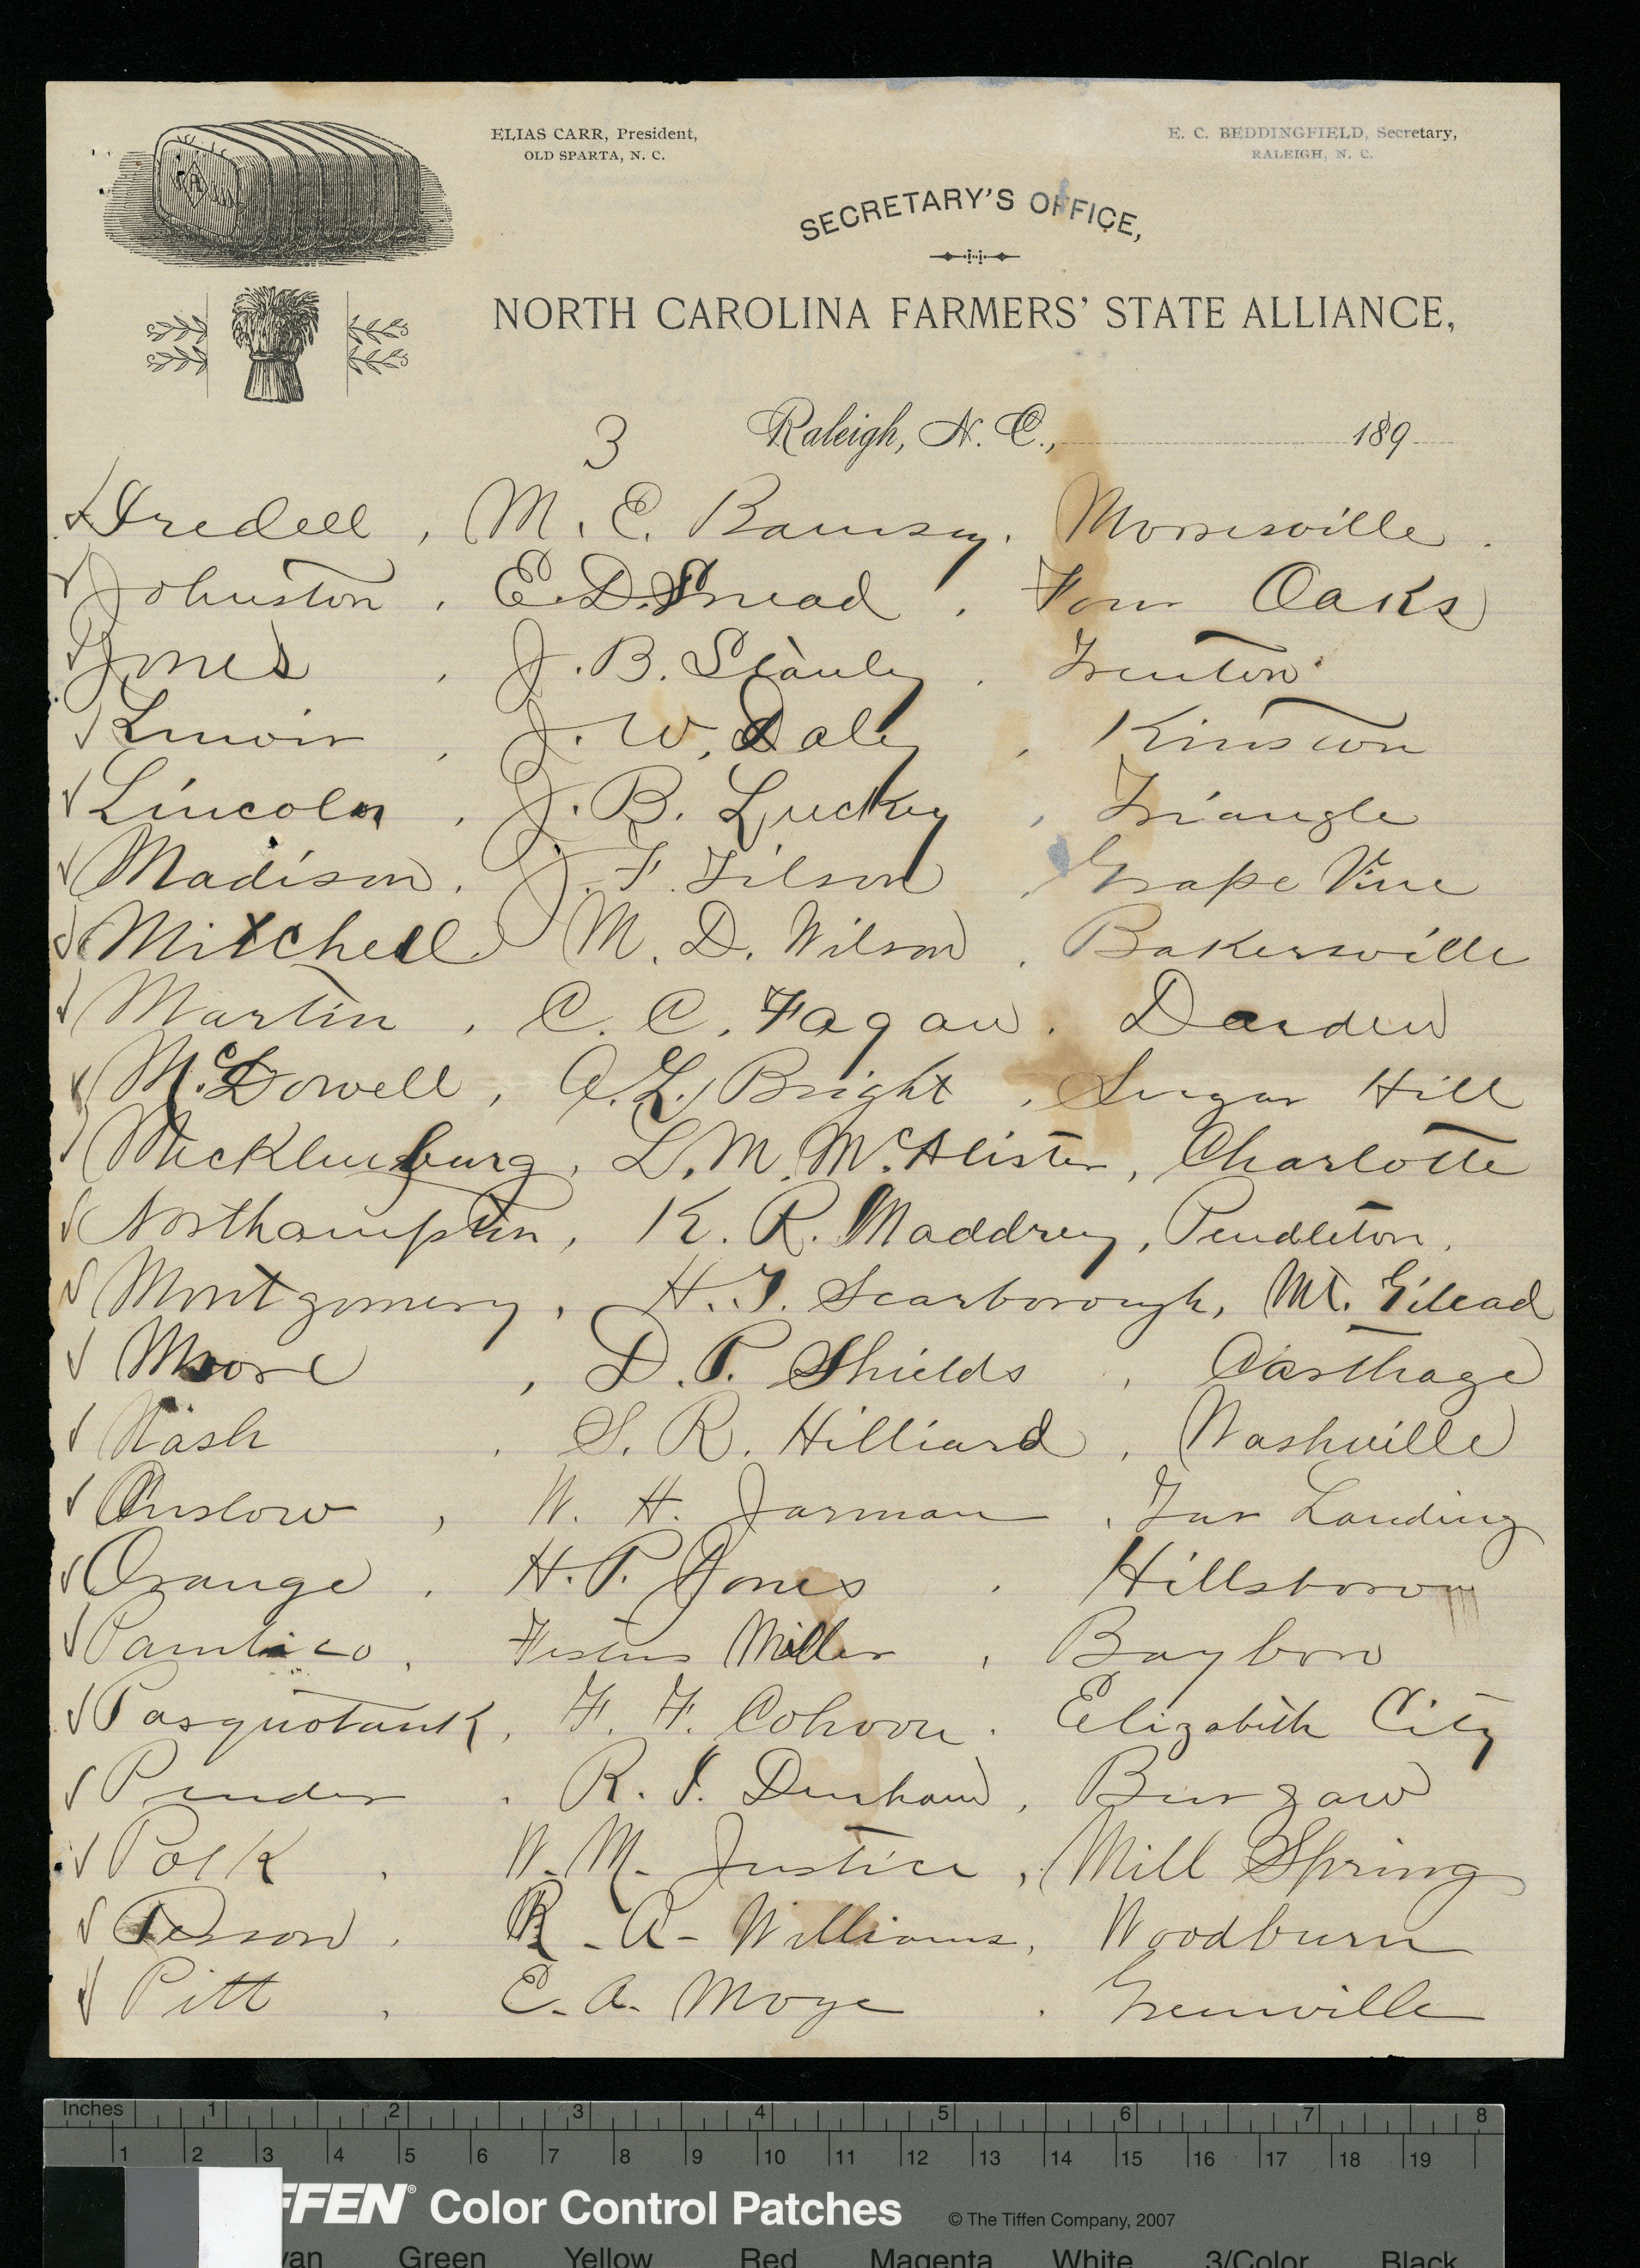 ELIAS CARR, President,
OLD SPARTA, N. C.
E. C. BEDDINGFIELD, Secretary,
RALEIGH, N. C.
SECRETARY'S OFFICE,
NORTH CAROLINA FARMERS' STATE ALLIANCE,
3 Raleigh, N. C., 189
Iredell, M. E. Ramsey. Morrisville.
Johnston, E. D. Snead, Four Oaks
Jones, J. B. Stanly, Trenton
Lenoir, J. W. Daly, Kinston
Lincoln, J. B. Luckey, Triangle
Madison, J. F. Tilson, Grape Vine
Mitchell. M. D. Wilson, Bakersville
Martin, C. C. Fagan. Darden
McDowell, A. L. Bright, Sugar Hill
Mecklenburg, L. M. McAlister, Charlotte
Northampton, K. R. Maddrey, Pendleton.
Montgomery, H. T. Scarborough, Mt. Gilead
Moore, D. P. Shields, Carthage
Nash, S. R. Hilliard, Nashville
Onslow, W. H. Jarman, Tar Landing
Orange, H. P. Jones, Hillsboro
Pamlico, Festus Miller, Bayboro
Pasquotank, F. F. Cohoon. Elizabeth City
Pender, R. I. Durham, Burgaw
Polk, W. M. Justice, Mill Spring
Person, R. A. Williams, Woodburn
Pitt, E. A. Moye. Greenville
Inches 1 2 3 4 5 6 7 8
1 2 3 4 5 6 7 8 9 10 11 12 13 14 15 16 17 18 19
FFEN® Color Control Patches © The Tiffen Company, 2007
yan Green Yellow Red Magenta White 3/Color Black